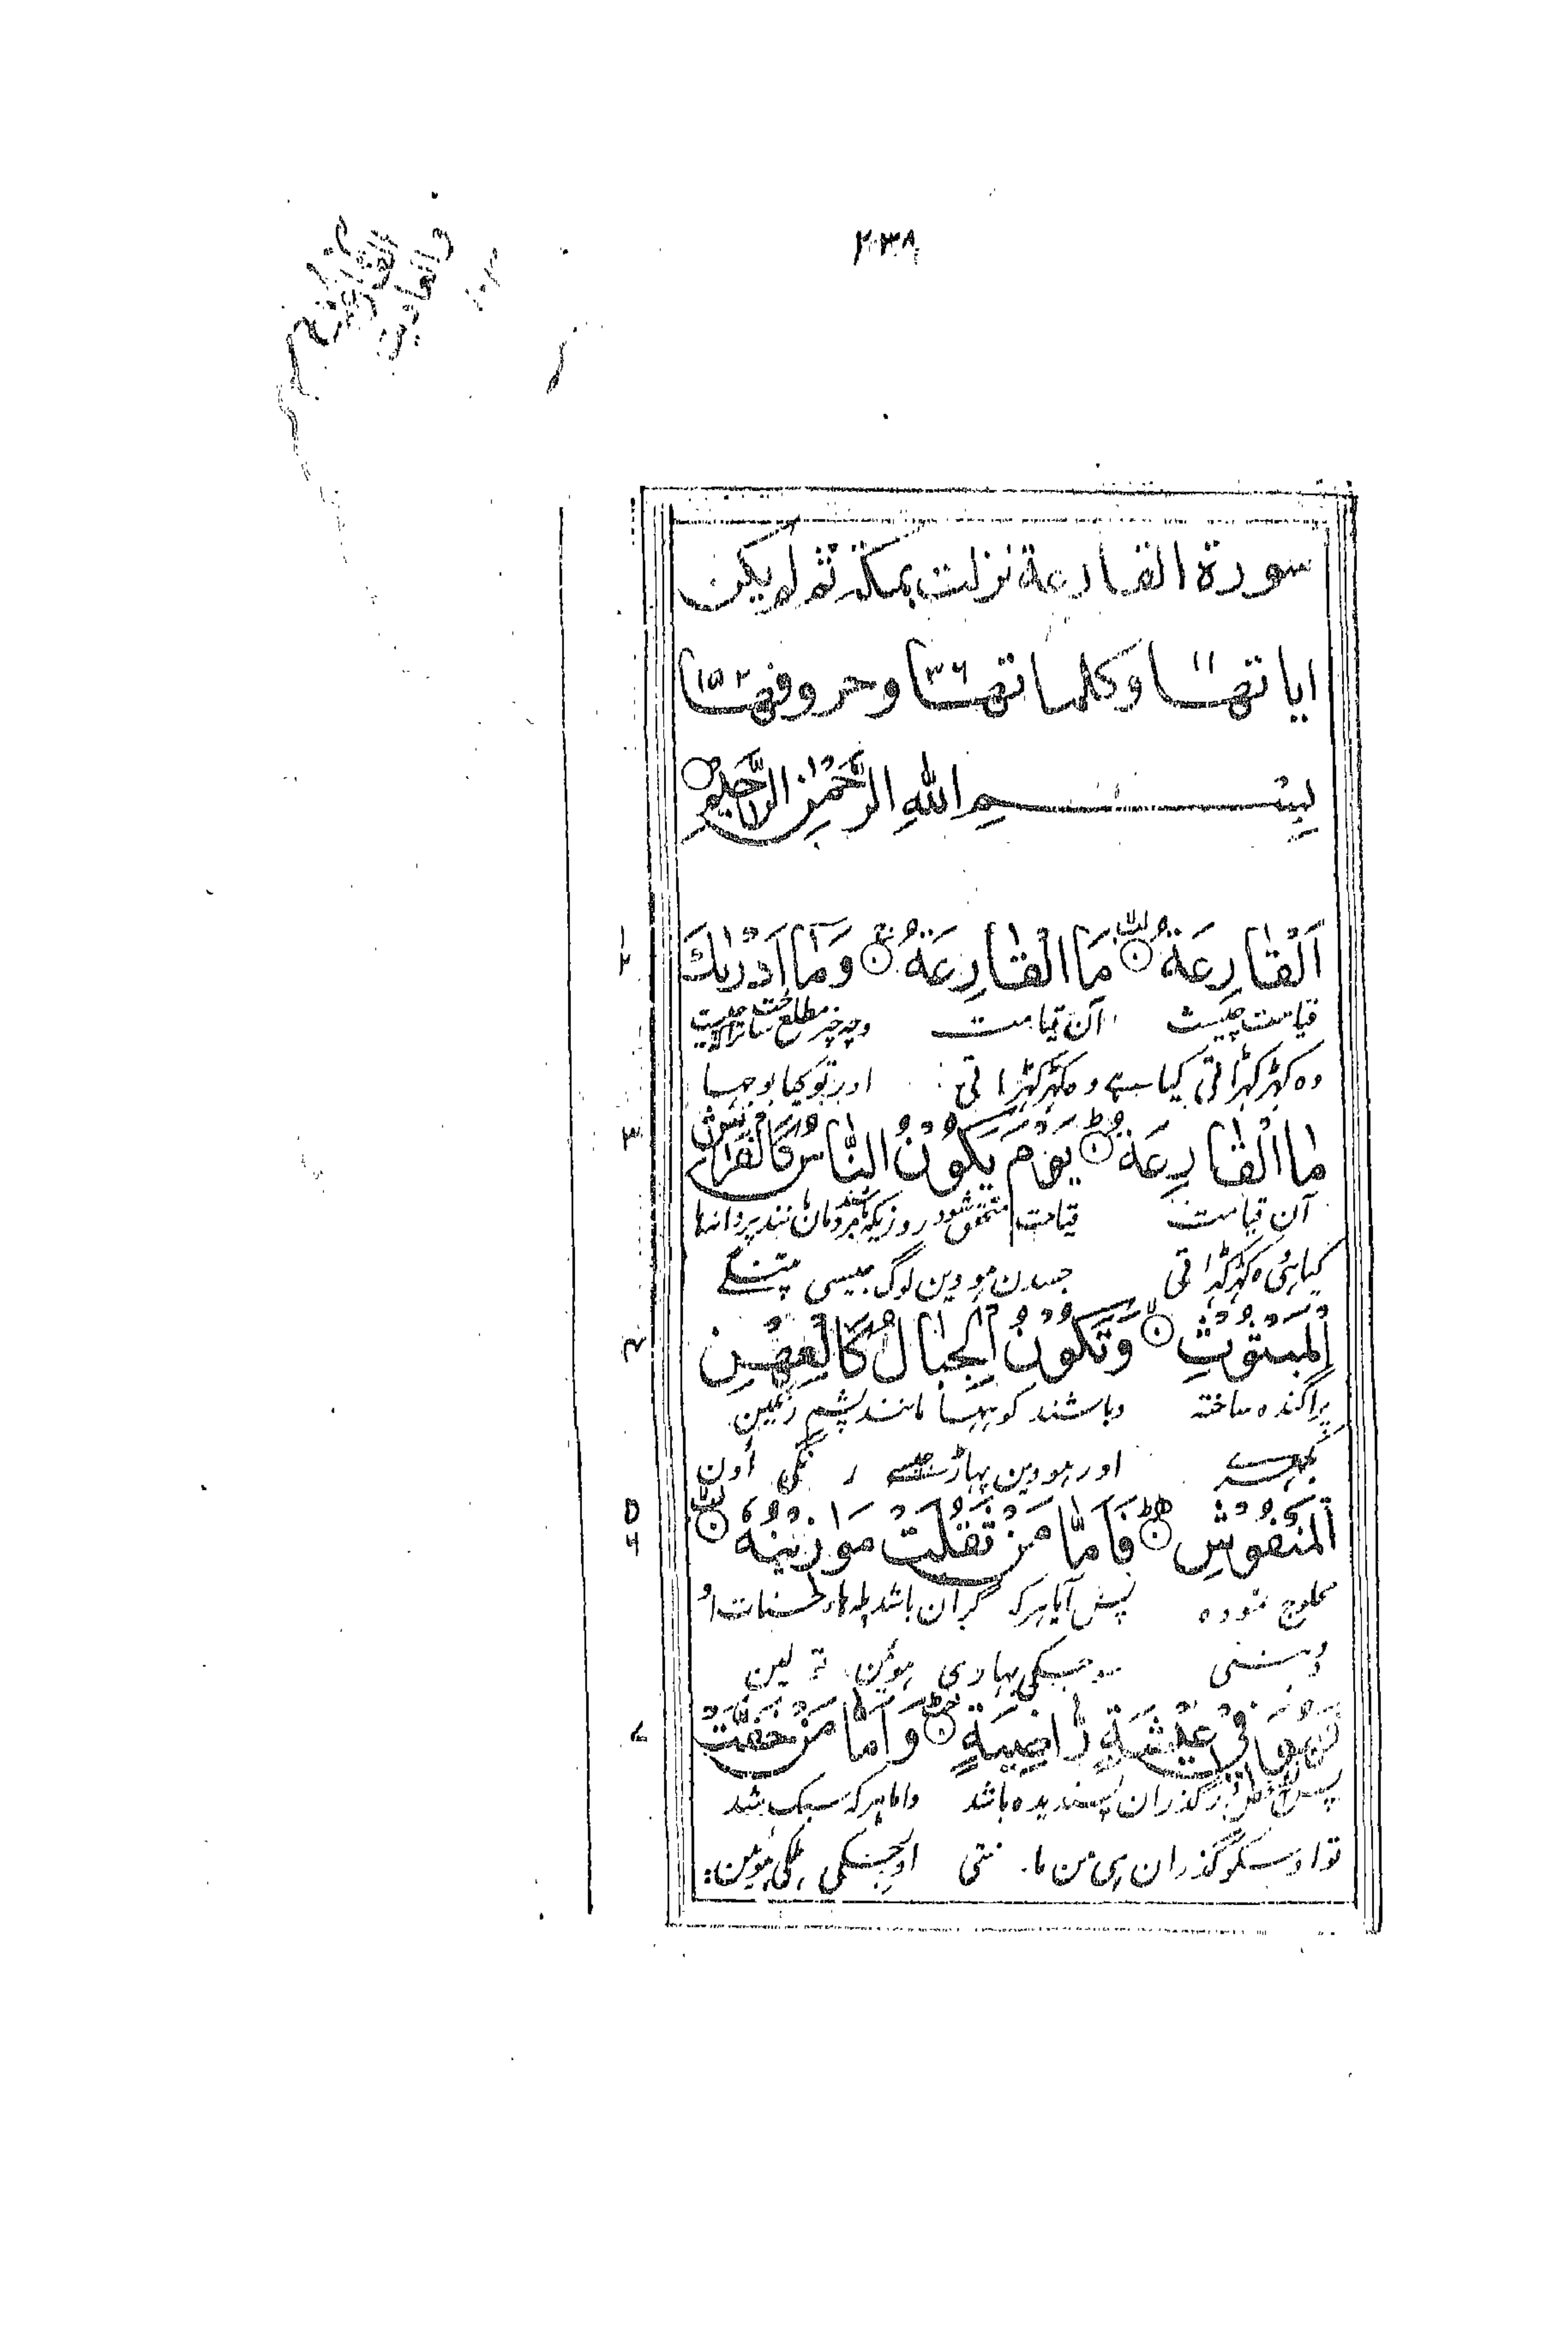 ۲۳۸
سورة القارعة نزلت بمكة ثم لم يكن
اياتها ۱۱ وكلماتها ۳۶ وحروفها ۱۵۲
بِسْمِ اللهِ الرَّحْمٰنِ الرَّحِيْمِ
اَلْقَارِعَةُ مَا الْقَارِعَةُ وَمَا اَدْرٰىكَ
قیامت چیست آن قیامت وچه چیز مطلع ساخت ترا که چیست
وہ کہڑکہڑاتی کیا ہے وہ کہڑکہڑاتی اور تو کیا بوجہا
مَا الْقَارِعَةُ يَوْمَ يَكُوْنُ النَّاسُ كَالْفَرَاشِ
آن قیامت قیامت متحقق شود روزیکه باشند مردمان مانند پروانه‌ها
کیا ہی وہ کہڑکہڑاتی جسدن ہووین لوگ جیسی پتنگے
الْمَبْثُوْثِ وَتَكُوْنُ الْجِبَالُ كَالْعِهْنِ
پراگنده ساخته وباشند کوهها مانند پشم رنگین
بکہرے اور ہووین پہاڑ جیسے رنگی اُون
الْمَنْفُوْشِ فَاَمَّا مَنْ ثَقُلَتْ مَوَازِيْنُهٗ
محلوج نموده پس آیا هرکه گران باشد پله‌های حسنات او
دہنی سو جسکی بہاری ہوئین تولین
فَهُوَ فِيْ عِيْشَةٍ رَّاضِيَةٍ وَاَمَّا مَنْ خَفَّتْ
پس گذران پسندیده باشد واما هرکه سبک شد
تو اوسکو گذران ہی من مانتی اور جسکی ہلکی ہوئین